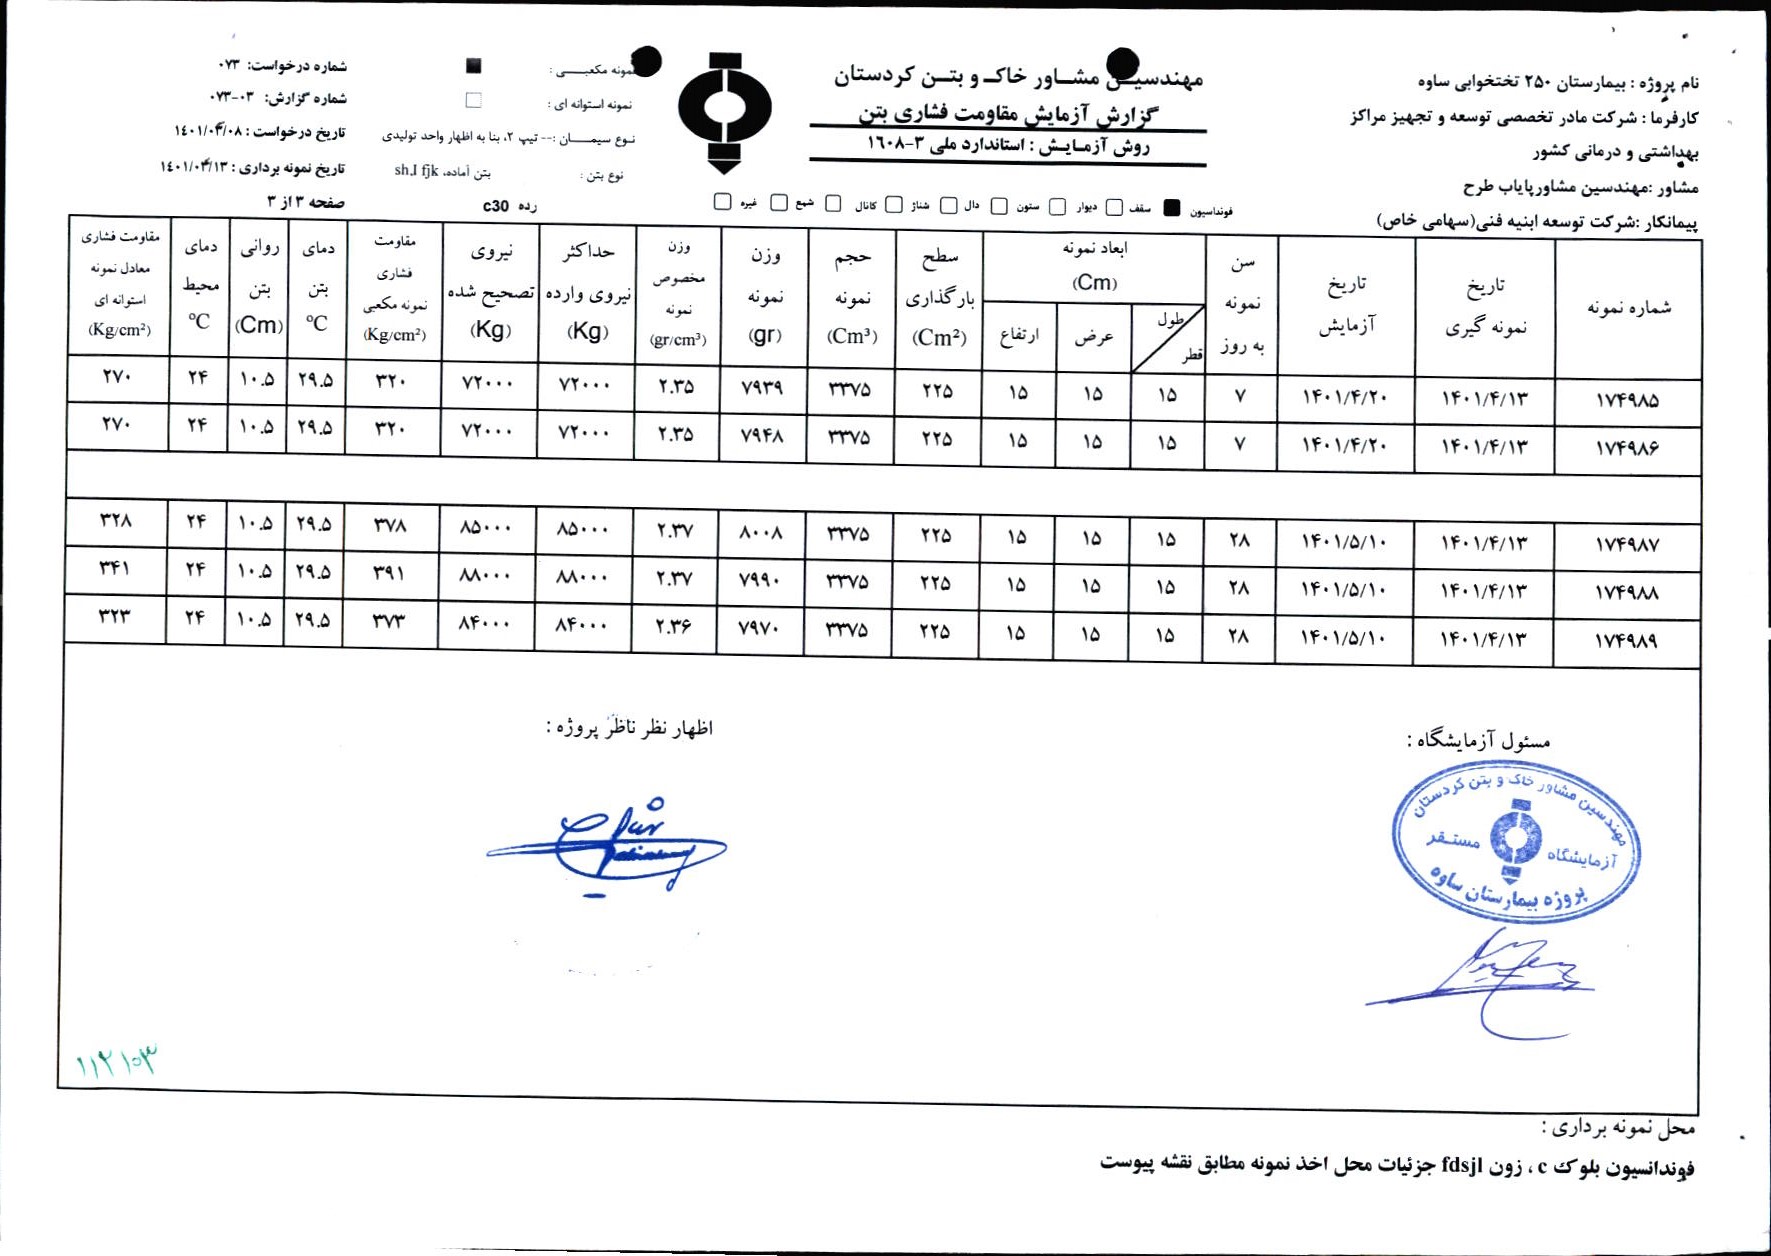 نام پروژه : بیمارستان ۲۵۰ تختخوابی ساوه
کارفرما : شرکت مادر تخصصی توسعه و تجهیز مراکز
بهداشتی و درمانی کشور
مشاور :مهندسین مشاورپایاب طرح
پیمانکار :شرکت توسعه ابنیه فنی(سهامی خاص)
مهندسیـن مشـاور خاکـ و بتـن کردستان
گزارش آزمایش مقاومت فشاری بتن
روش آزمـایـش : استاندارد ملی ۳-۱۶۰۸
فونداسیون سقف دیوار ستون دال شناژ کانال شمع غیره
نمونه مکعبـــی :
نمونه استوانه ای :
نـوع سیمــان :-- تیپ ۲، بنا به اظهار واحد تولیدی
نوع بتن : بتن آماده، sh.I fjk
رده c30
شماره درخواست: ۰۷۳
شماره گزارش: ۰۳-۰۷۳
تاریخ درخواست : ۱۴۰۱/۰۴/۰۸
تاریخ نمونه برداری : ۱۴۰۱/۰۴/۱۳
صفحه ۳ از ۳
شماره نمونه | تاریخ نمونه گیری | تاریخ آزمایش | سن نمونه به روز | ابعاد نمونه (Cm) طول قطر | عرض | ارتفاع | سطح بارگذاری (Cm²) | حجم نمونه (Cm³) | وزن نمونه (gr) | وزن مخصوص نمونه (gr/cm³) | حداکثر نیروی وارده (Kg) | نیروی تصحیح شده (Kg) | مقاومت فشاری نمونه مکعبی (Kg/cm²) | دمای بتن °C | روانی بتن (Cm) | دمای محیط °C | مقاومت فشاری معادل نمونه استوانه ای (Kg/cm²)
۱۷۴۹۸۵ | ۱۴۰۱/۴/۱۳ | ۱۴۰۱/۴/۲۰ | ۷ | ۱۵ | ۱۵ | ۱۵ | ۲۲۵ | ۳۳۷۵ | ۷۹۳۹ | ۲.۳۵ | ۷۲۰۰۰ | ۷۲۰۰۰ | ۳۲۰ | ۲۹.۵ | ۱۰.۵ | ۲۴ | ۲۷۰
۱۷۴۹۸۶ | ۱۴۰۱/۴/۱۳ | ۱۴۰۱/۴/۲۰ | ۷ | ۱۵ | ۱۵ | ۱۵ | ۲۲۵ | ۳۳۷۵ | ۷۹۴۸ | ۲.۳۵ | ۷۲۰۰۰ | ۷۲۰۰۰ | ۳۲۰ | ۲۹.۵ | ۱۰.۵ | ۲۴ | ۲۷۰
۱۷۴۹۸۷ | ۱۴۰۱/۴/۱۳ | ۱۴۰۱/۵/۱۰ | ۲۸ | ۱۵ | ۱۵ | ۱۵ | ۲۲۵ | ۳۳۷۵ | ۸۰۰۸ | ۲.۳۷ | ۸۵۰۰۰ | ۸۵۰۰۰ | ۳۷۸ | ۲۹.۵ | ۱۰.۵ | ۲۴ | ۳۲۸
۱۷۴۹۸۸ | ۱۴۰۱/۴/۱۳ | ۱۴۰۱/۵/۱۰ | ۲۸ | ۱۵ | ۱۵ | ۱۵ | ۲۲۵ | ۳۳۷۵ | ۷۹۹۰ | ۲.۳۷ | ۸۸۰۰۰ | ۸۸۰۰۰ | ۳۹۱ | ۲۹.۵ | ۱۰.۵ | ۲۴ | ۳۴۱
۱۷۴۹۸۹ | ۱۴۰۱/۴/۱۳ | ۱۴۰۱/۵/۱۰ | ۲۸ | ۱۵ | ۱۵ | ۱۵ | ۲۲۵ | ۳۳۷۵ | ۷۹۷۰ | ۲.۳۶ | ۸۴۰۰۰ | ۸۴۰۰۰ | ۳۷۳ | ۲۹.۵ | ۱۰.۵ | ۲۴ | ۳۲۳
مسئول آزمایشگاه :
اظهار نظر ناظر پروژه :
مهندسین مشاور خاک و بتن کردستان
آزمایشگاه مستـقر
پروژه بیمارستان ساوه
محل نمونه برداری :
فوندانسیون بلوک c ، زون fdsjl جزئیات محل اخذ نمونه مطابق نقشه پیوست